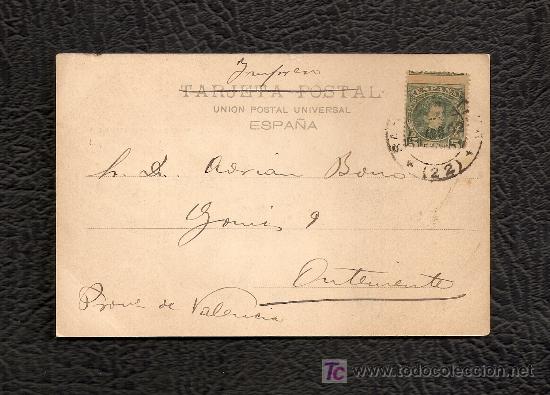 Impreso
TARJETA POSTAL
UNION POSTAL UNIVERSAL
ESPAÑA
ESPAÑA
(22)
Sr. D. Adrian Bono
Gomis 9
Onteniente
Prov. de Valencia
TC todocoleccion
www.todocoleccion.net